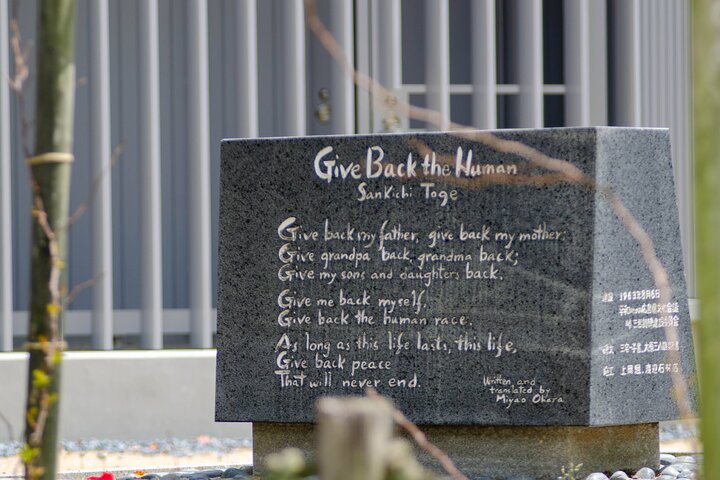 Give Back the Human
Sankichi Toge
Give back my father, give back my mother;
Give grandpa back, grandma back;
Give my sons and daughters back.
Give me back myself,
Give back the human race.
As long as this life lasts, this life,
Give back peace
That will never end.
Written and
translated by
Miyao Ohara
1963年8月6日